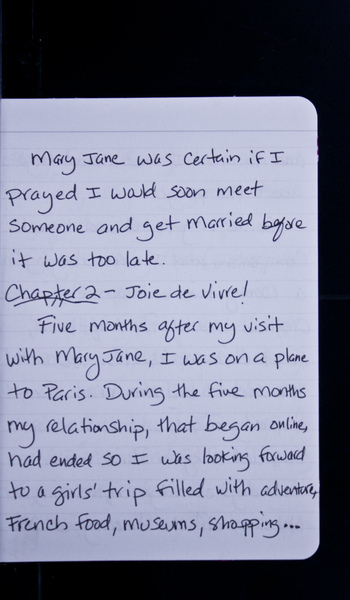 Mary Jane was certain if I
prayed I would soon meet
someone and get married before
it was too late.
Chapter 2 - Joie de Vivre!
Five months after my visit
with Mary Jane, I was on a plane
to Paris. During the five months
my relationship, that began online,
had ended so I was looking forward
to a girls' trip filled with adventure,
French food, museums, shopping...